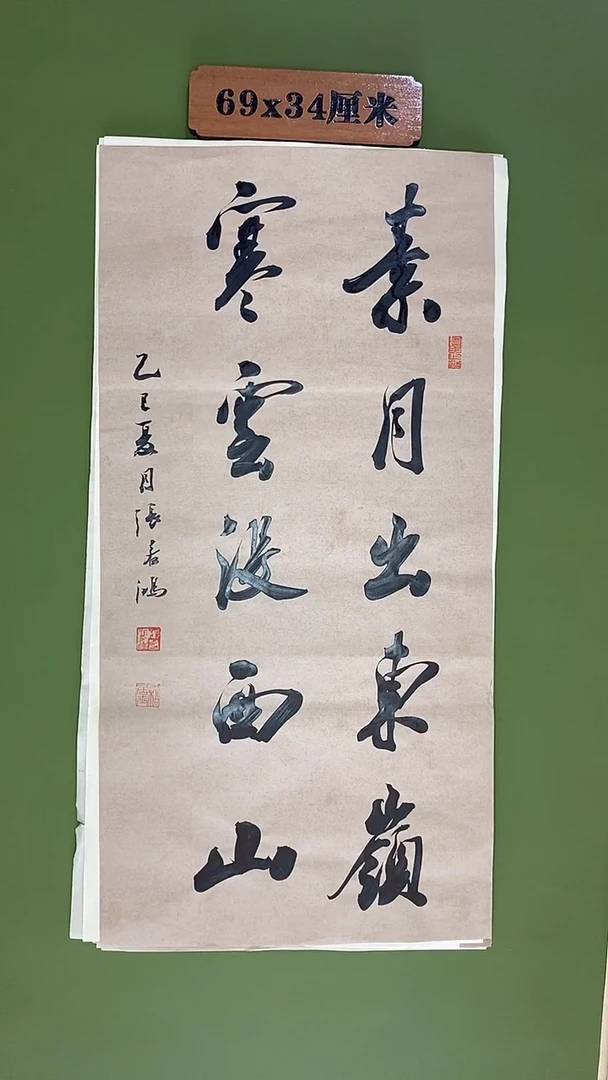 69x34厘米
素月出東嶺
寒雲没西山
乙巳夏月張春鴻